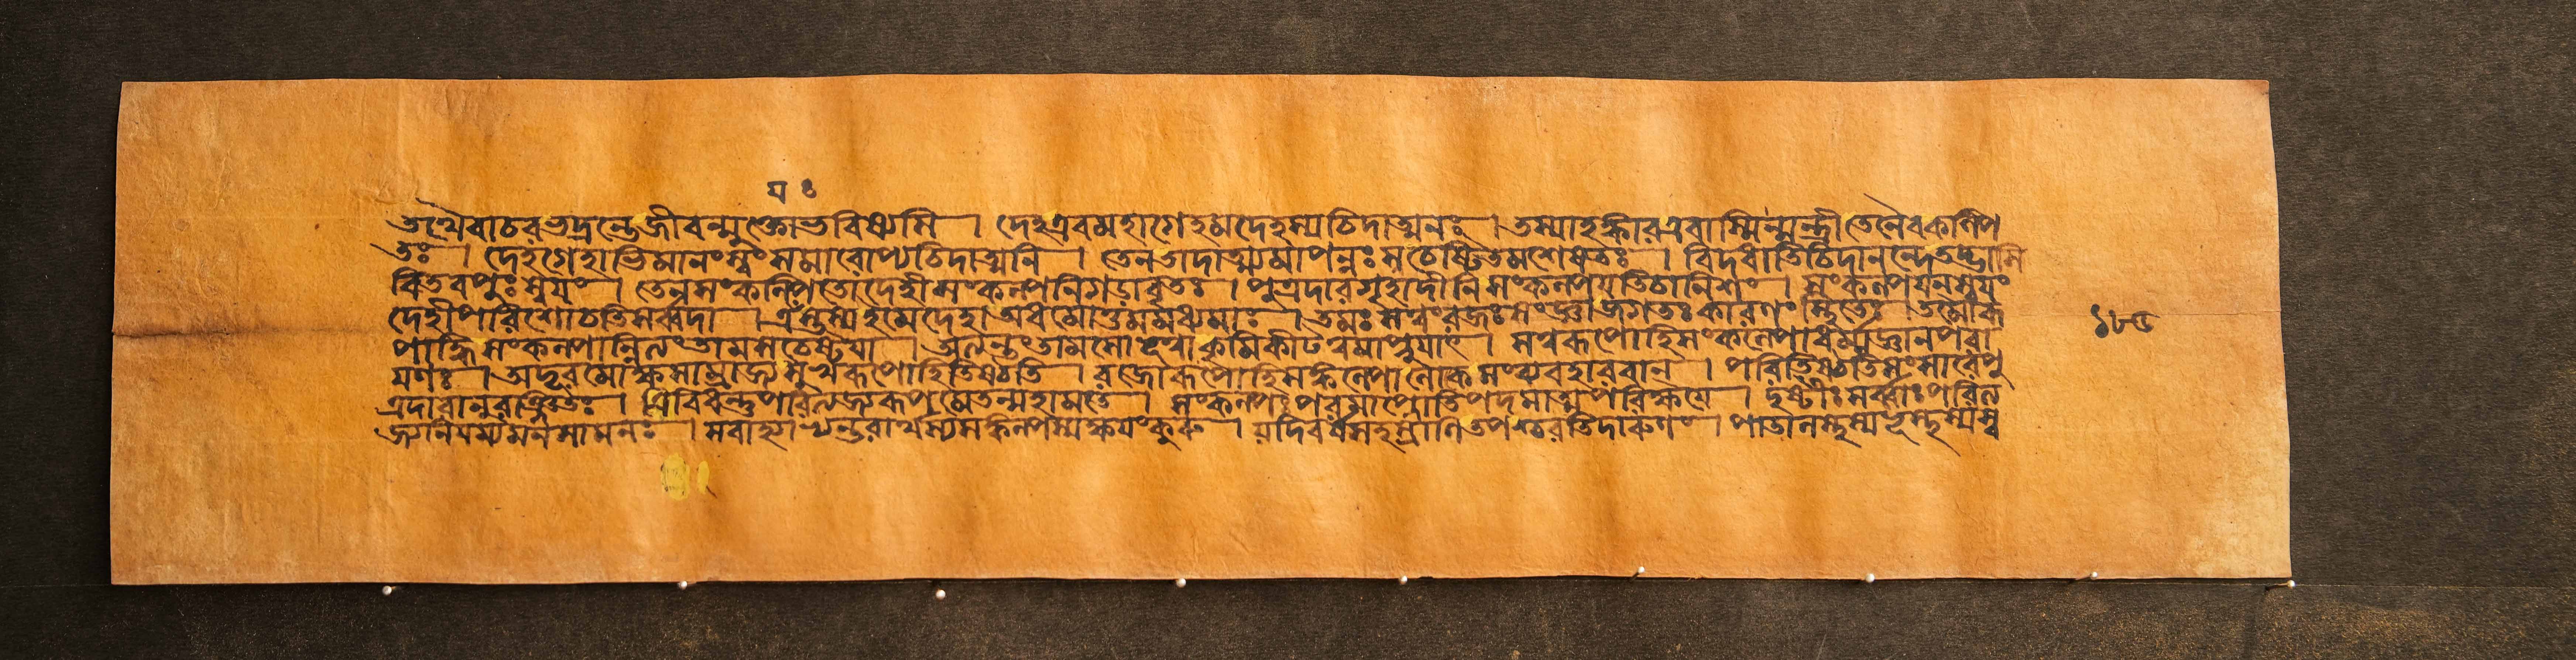 যঃ
তথৈবাচরভদ্রন্তেজীবন্মুক্তোভবিষ্যসি । দেহএবমহাগেহমদেহস্যচিদাত্মনঃ । তস্যাহঙ্কারএবাস্মিন্মন্ত্রীতেনৈবকল্পি
তঃ । দেহগেহাভিমানংস্বংসমারোপ্যচিদাত্মনি । তেনতাদাত্ম্যমাপন্নঃস্বচেষ্টিতমশেষতঃ । বিদধাতিচিদানন্দেতদ্বাসি
তবপুঃস্বয়ং । তেনসংকল্পিতোদেহীসংকল্পনিগড়াবৃতঃ । পুত্রদারগৃহাদীনিসংকল্পযতিচানিশং । সংকল্পযন্স্বযং
দেহীপরিশোচতিসর্ব্বদা । ত্রযস্তস্যাহমোদেহাঅধমোত্তমমধ্যমাঃ । তমঃসত্ত্বংরজঃসংজ্ঞাজগতঃকারণংস্থিতেঃ । তমোরূ
পাদ্ধিসংকল্পান্নিত্যংতামসচেষ্টযা । অত্যন্তংতামসোভূত্বাকৃমিকীটত্বমাপ্নুযাৎ । সত্ত্বরূপোহিসংকল্পোধর্ম্মজ্ঞানপরা
যণঃ । অদূরমোক্ষসাম্রাজ্যসুখরূপোহিতিষ্ঠতি । রজোরূপোহিসঙ্কল্পোলোকেসংব্যবহারবান্ । পরিতিষ্ঠতিসংসারেপু
ত্রদারানুরঞ্জিতঃ । ত্রিবিধন্তুপরিত্যজ্যরূপমেতন্মহামতে । সংকল্পঃপরমাপ্নোতিপদমাত্মপরিক্ষযে । দৃষ্টীঃসর্ব্বাঃপরিত্য
জ্যনিযম্যমনসামনঃ । সবাহ্যাভ্যন্তরার্থস্যসঙ্কল্পস্যক্ষযংকুরু । যদিবর্ষসহস্রাণিতপশ্চরসিদারুণং । পাতালস্থস্যভূস্থস্যস্ব